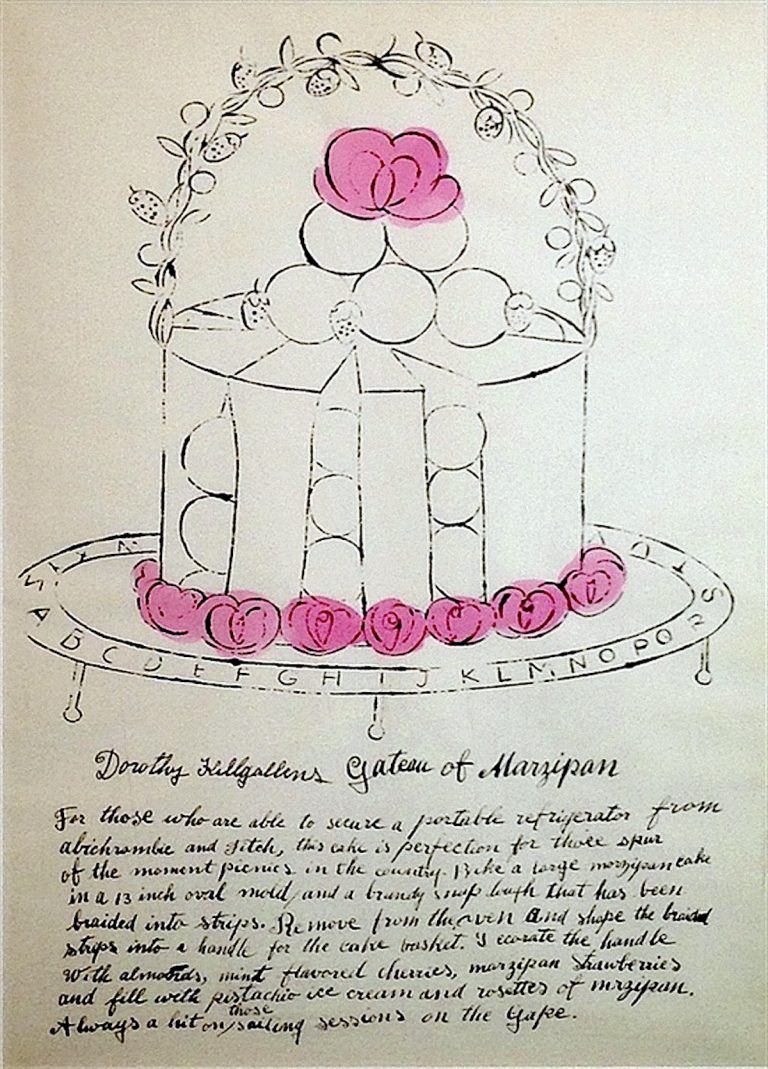 S T U V
V T S
A B C D E F G H I J K L M N O P Q R S
Dorothy Killgallens Gateau of Marzipan
For those who are able to secure a portable refrigerator from
abichrombie and fitch, this cake is perfection for those spur
of the moment picnics in the country. Bake a large marzipan cake
in a 13 inch oval mold, and a brandy snap tough that has been
braided into strips. Remove from the oven and shape the braided
strips into a handle for the cake basket. Decorate the handle
with almonds, mint flavored cherries, marzipan strawberries
and fill with pistachio ice cream and rosettes of mrzipan.
Always a hit on those sailing sessions on the Yape.